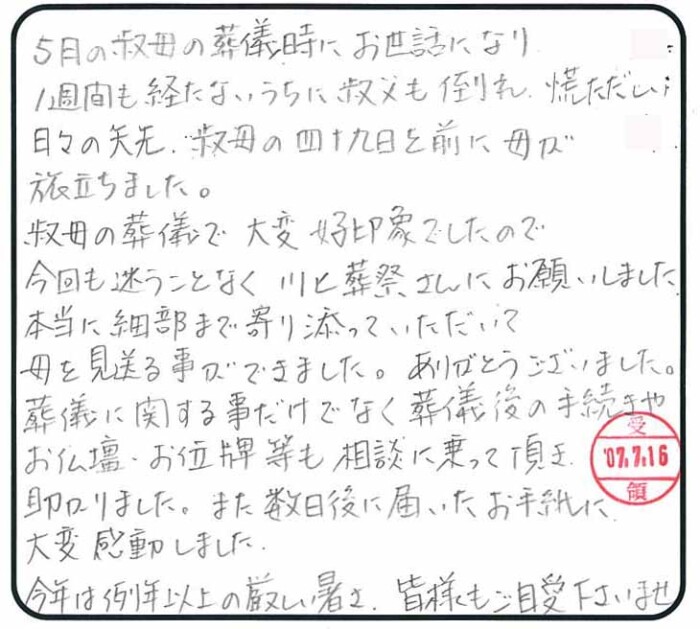 5月の叔母の葬儀時にお世話になり
1週間も経たないうちに叔父も倒れ、慌ただしい
日々の矢先、叔母の四十九日を前に母が
旅立ちました。
叔母の葬儀で大変好印象でしたので
今回も迷うことなく川上葬祭さんにお願いしました
本当に細部まで寄り添っていただいて
母を見送る事ができました。ありがとうございました。
葬儀に関する事だけでなく葬儀後の手続きや
お仏壇・お位牌等も相談に乗って頂き、
助かりました。また数日後に届いたお手紙に
大変感動しました。
今年は例年以上の厳しい暑さ、皆様もご自愛下さいませ
受
'07.7.16
領